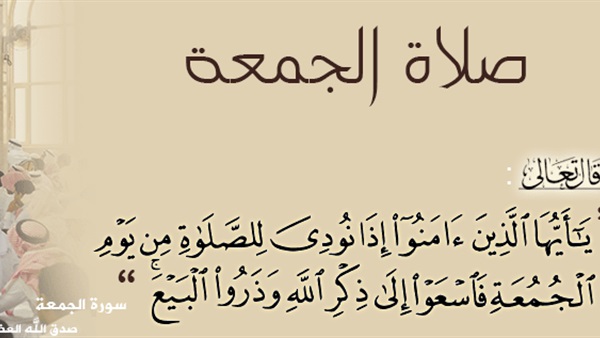 صلاة الجمعة
قال تعالى :
يَٰٓأَيُّهَا ٱلَّذِينَ ءَامَنُوٓا۟ إِذَا نُودِىَ لِلصَّلَوٰةِ مِن يَوْمِ
ٱلْجُمُعَةِ فَٱسْعَوْا۟ إِلَىٰ ذِكْرِ ٱللَّهِ وَذَرُوا۟ ٱلْبَيْعَ ۚ “
سورة الجمعة
صدق الله